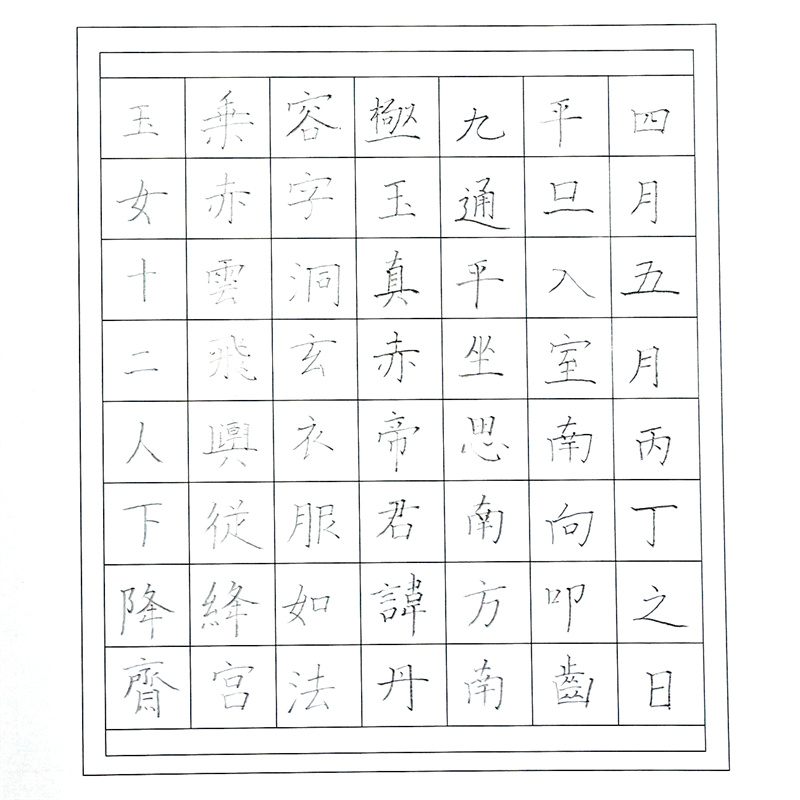 四月五月丙丁之日
平旦入室南向叩齒
九通平坐思南方南
極玉真赤帝君諱丹
容字洞玄衣服如法
乗赤雲飛輿從絳宮
玉女十二人下降齎